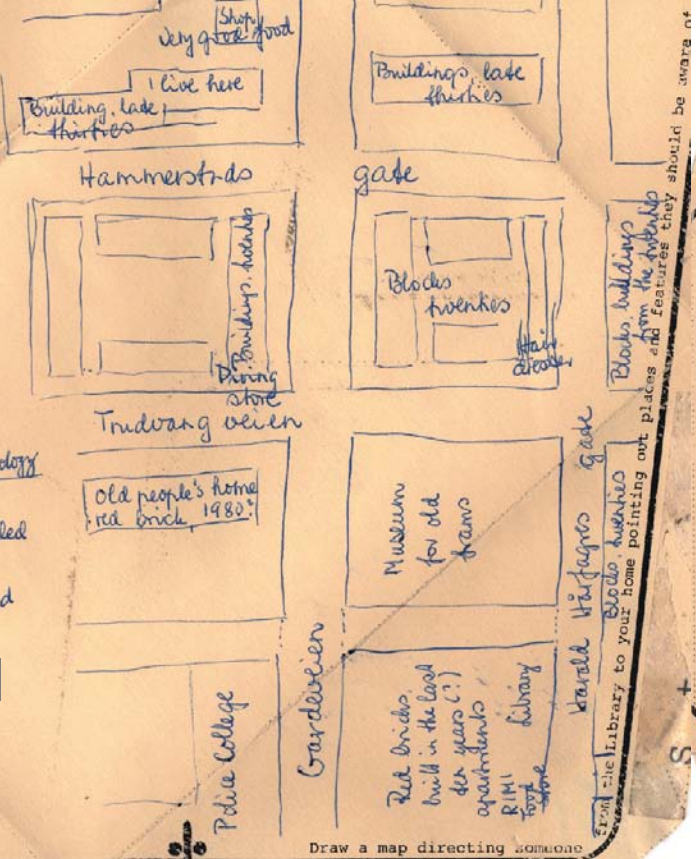 Shop
very good food
I live here
Building, late
thirties
Buildings, late
thirties
Hammerstads gate
Buildings, twenties
Diving
store
Blocks
twenties
Hair
dresser
Blocks, buildings
from the twenties
Trudvang veien
ology
led
d
old people's home
red brick, 1980?
Museum
for old
trams
Harald Hårfagres gate
Blocks, twenties
Police College
Gardeveien
Red bricks,
built in the last
ten years (?)
apartments
RIMI
food
store
Library
Draw a map directing someone
from the Library to your home pointing out places and features they should be aware of
S +